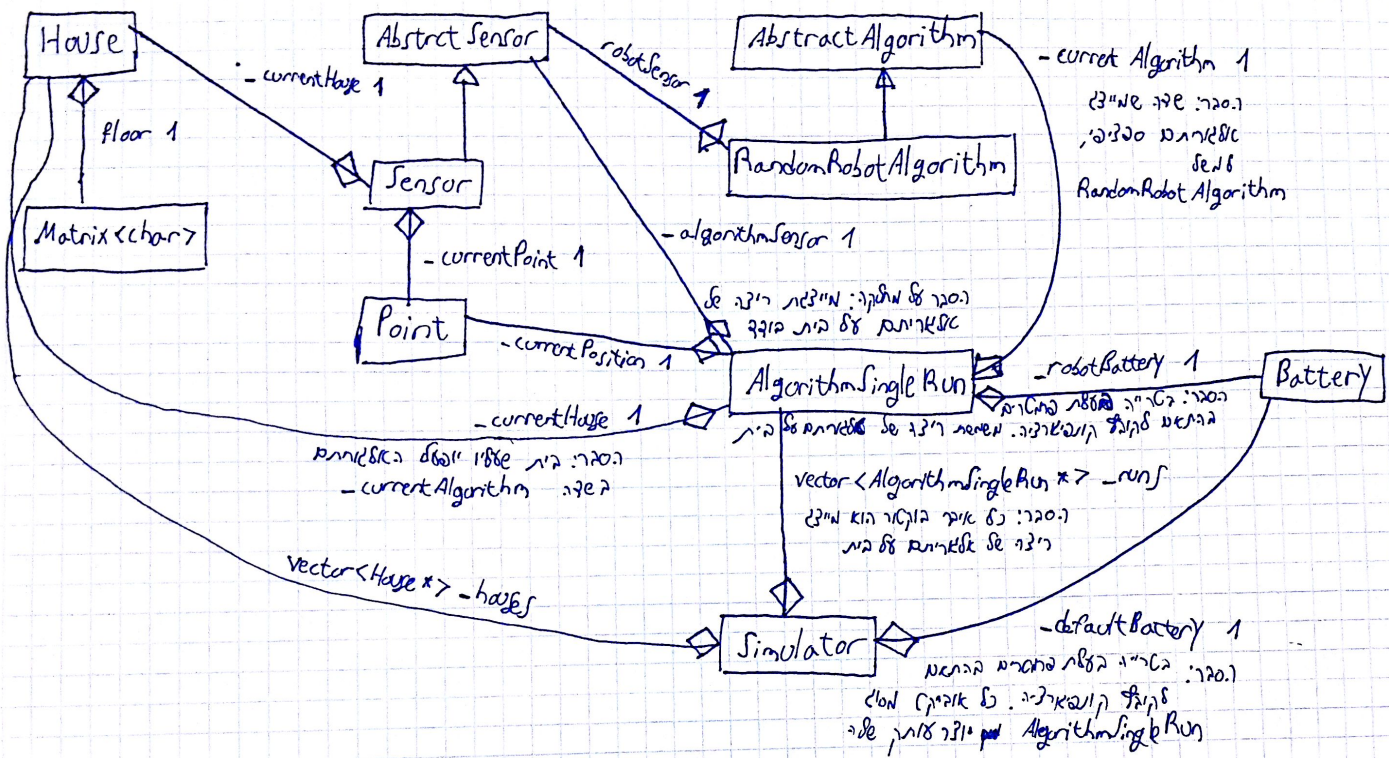 House
Abstrct Sensor
AbstractAlgorithm
_currentHouse 1
robotSensor 1
_curret Algorithm 1
הסבר: שדה שמייצג
אלגוריתם ספציפי,
למשל
RandomRobotAlgorithm
floor 1
Sensor
RandomRobotAlgorithm
Matrix<char>
_currentPoint 1
_algorithmSensor 1
הסבר על מחלקה: מייצגת ריצה של
אלגוריתם על בית בודד
Point
_currentPosition 1
AlgorithmSingleRun
_robotBattery 1
Battery
הסבר: בטרייה בעלת פרמטרים
בהתאם לקובץ קונפיגורציה. משמשת ריצה של אלגוריתם על בית
_currentHouse 1
הסבר: בית שעליו יופעל האלגוריתם
בשדה _currentAlgorithm
vector<AlgorithmSingleRun *> _runs
הסבר: כל איבר בוקטור הוא מייצג
ריצה של אלגוריתם על בית
vector<House *> _houses
Simulator
_defaultBattery 1
הסבר: בטרייה בעלת פרמטרים בהתאם
לקובץ קונפיגורציה. כל אובייקט מסוג
AlgorithmSingleRun יוצר עותק שלה